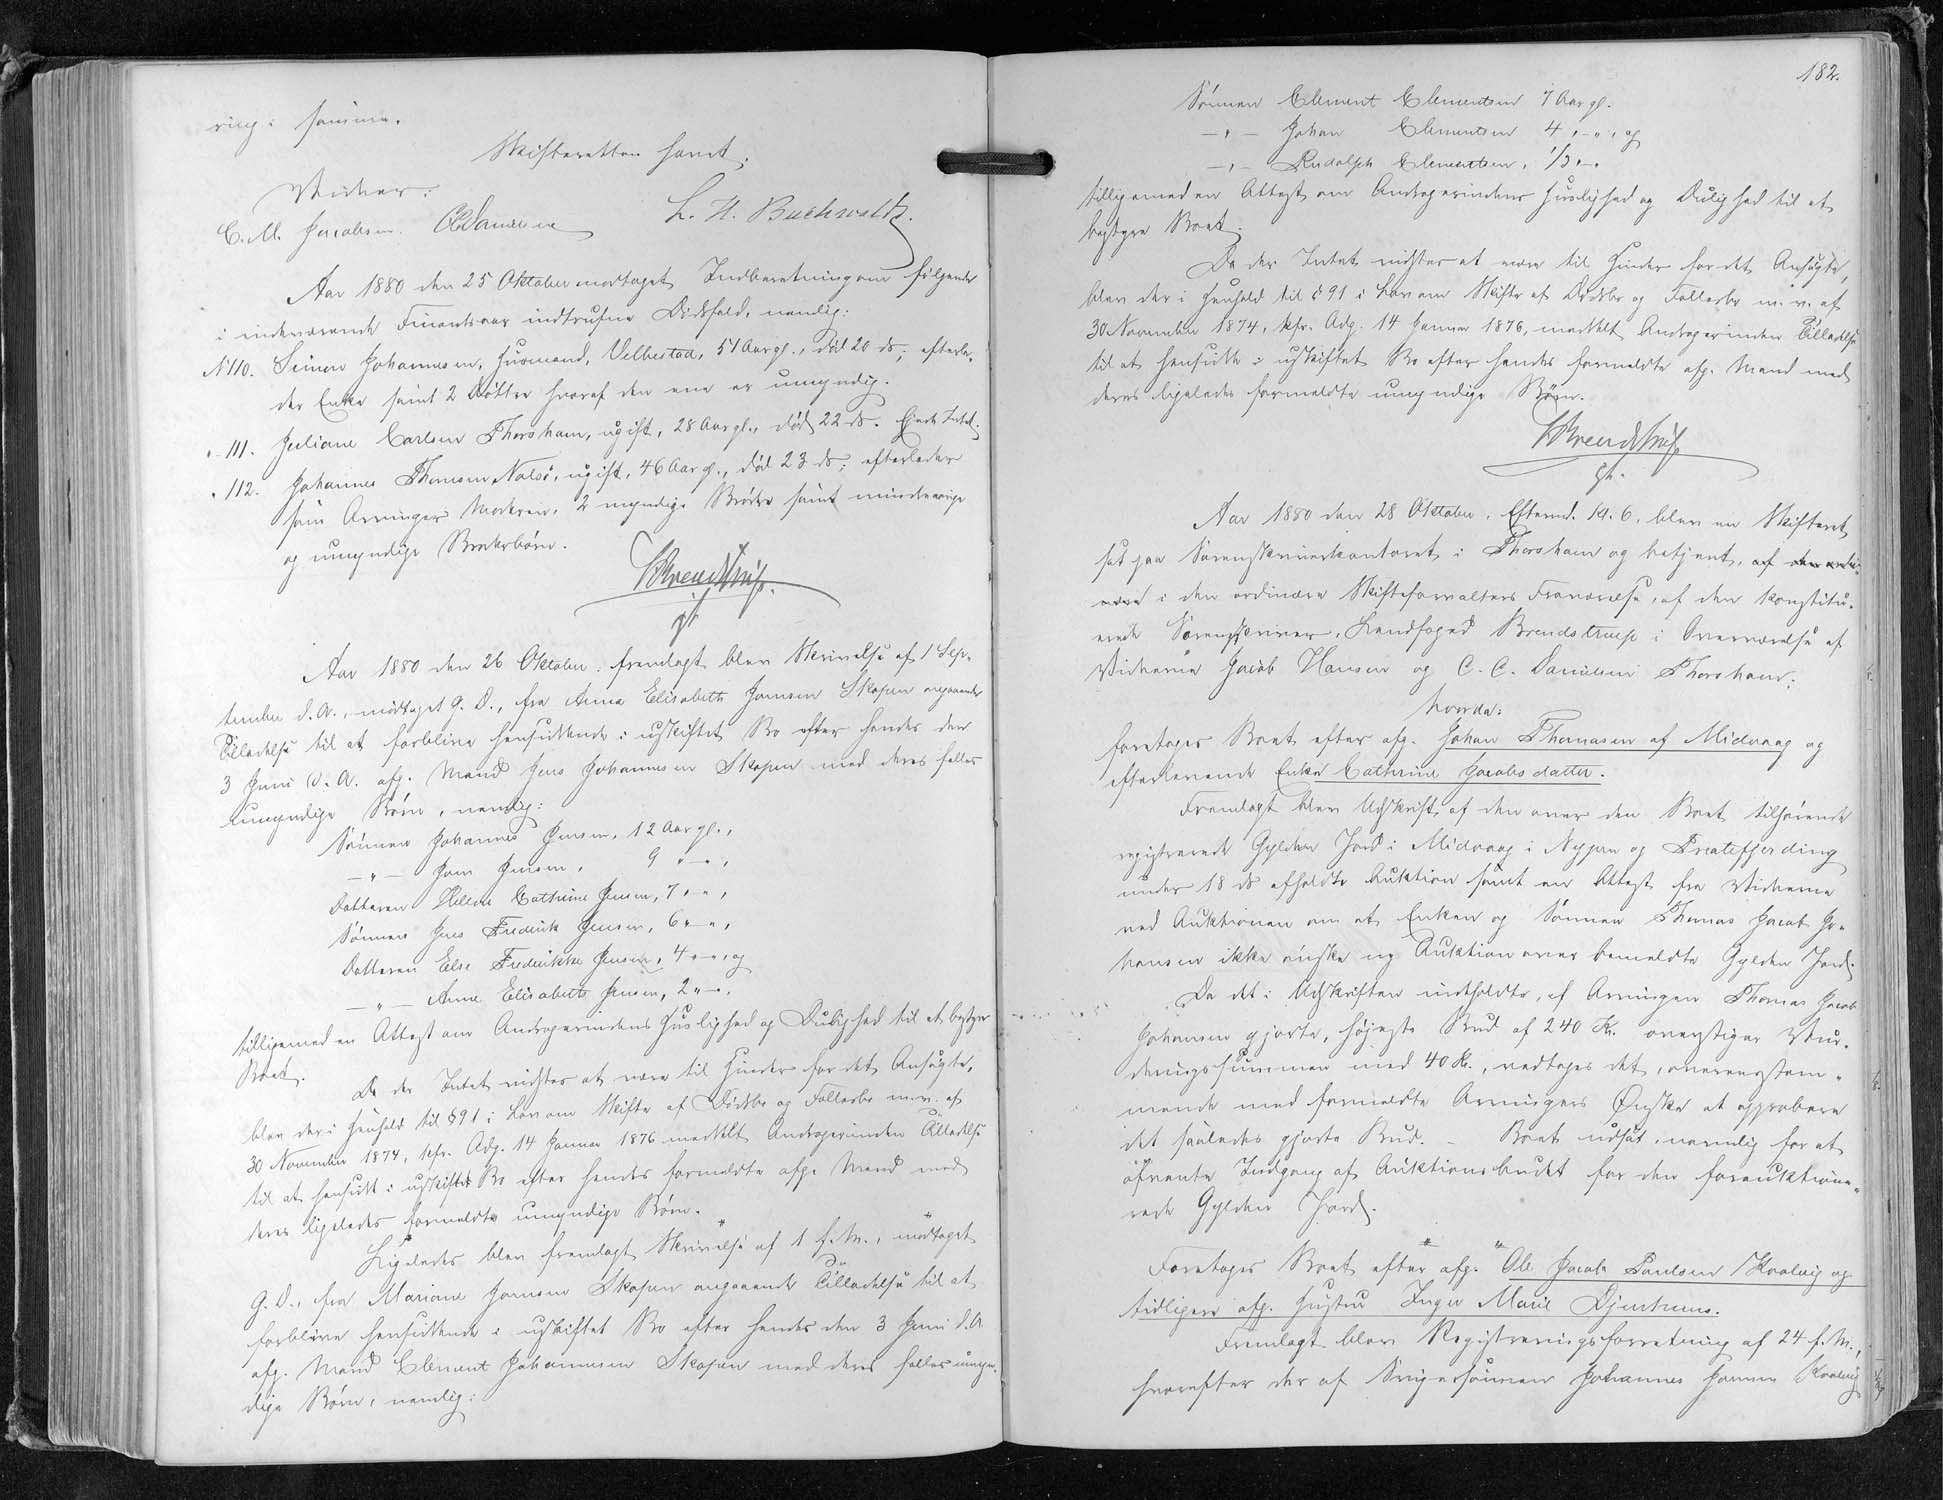 ring i samme.
Skifteretten hævet.
Vidner:
C. M. Jacobsen. CDanielsen L. H. Buchwaldt.
Aar 1880 den 25 Oktober modtaget Indberetning om følgende
i indeværende Finantsaar indtrufne Dødsfald, nemlig:
N 110. Simon Johannesen, Husmand, Velbestad, 51 Aar gl., død 20 ds; efterla-
der Enke samt 2 Døttre hvoraf den ene er umyndig.
" 111. Juliane Carlsen Thorshavn, ugift, 28 Aar gl., død 22 ds. Ejede Intet.
" 112. Johannes Thomsen, Nolsø, ugift, 46 Aar gl., død 23 ds; efterlader
som Arvinger Moderen, 2 myndige Brødre samt mindreaarige
og umyndige Broderbørn.
Brendstrup
Aar 1880 den 26 Oktober. fremlagt blev Skrivelse af 1 Sep-
tember d. A., modtaget G. D., fra Anna Elisabeth Joensen Skopen angaaende
Tilladelse til at forblive hensiddende i uskiftet Bo efter hendes den
3 Juni d. A. afg. Mand Jens Johannesen Skopen med deres fælles
umyndige Børn, nemlig:
Sønnen Johannes Jensen, 12 Aar gl.,
— " — Joen Jensen, 9 " — " ,
Datteren Hellene Cathrine Jensen, 7 " — " ,
Sønnen Jens Frederik Jensen, 6 " — " ,
Datteren Else Frederikke Jensen, 4 " — " , og
— " — Anne Elisabeth Jensen, 2 " — " ,
tilligemed en Attest om Andragerindens Huslighed og Duelighed til at bestyre
Boet.
Da der Intet vidstes at være til Hinder for det Ansøgte,
blev der i Henhold til § 91 i Lov om Skifte af Dødsbo og Fællesbo m. v. af
30 November 1874, kfr. Adg. 14 Januar 1876 meddelt Andragerinden Tilladelse
til at hensidde i uskiftet Bo efter hendes formeldte afg. Mand med
deres ligeledes formeldte umyndige Børn.
Ligeledes blev fremlagt Skrivelse af 1 f. M., modtaget
G. D., fra Mariane Joensen Skopen angaaende Tilladelse til at
forblive hensiddende i uskiftet Bo efter hendes den 3 Juni d. A
afg. Mand Clement Johannesen Skopen med deres fælles umyn-
dige Børn, nemlig:
182.
Sønnen Clement Clementsen 7 Aar gl.
— " — Johan Clementsen 4 " — " , og
— " — Rudolph Clementsen, 1/2 " — "
tilligemed en Attest om Andragerindens Huslighed og Duelighed til at
bestyre Boet.
Da der Intet vidstes at være til Hinder for det Ansøgte,
blev der i Henhold til § 91 i Lov om Skifte af Dødsbo og Fællesbo m. v. af
30 November 1874, kfr. Adg. 14 Januar 1876, meddelt Andragerinden Tilladelse
til at hensidde i uskiftet Bo efter hendes formeldte afg. Mand med
deres ligeledes formeldte umyndige Børn.
Brendstrup
Aar 1880 den 28 Oktober, Efterm. Kl. 6, blev en Skifteret
sat paa Sorenskriverkontoret i Thorshavn og betjent, af den ordi-
nære i den ordinære Skifteforvalters Fraværelse, af den konstitu-
erede Sorenskriver, Landfoged Brendstrup i Overværelse af
Vidnerne Jacob Hansen og C. C. Danielsen Thorshavn;
hvorda:
foretoges Boet efter afg. Johan Thomasen af Midvaag og
efterlevende Enke Cathrine Jacobsdatter.
Fremlagt blev Udskrift af den over den Boet tilhørende
registrerede Gylden Jord i Midvaag i Nygjern og Preatefjerding
under 18 ds afholdte Auktion samt en Attest fra Vidnerne
ved Auktionen om at Enken og Sønnen Thomas Jacob Jo-
hansen ikke ønske ny Auktion over bemeldte Gylden Jord.
Da det i Udskriften indholdte, af Arvingen Thomas Jacob
Johansen gjorte, højeste Bud af 240 Kr. overstiger Vur-
deringssummen med 40 Kr., vedtoges det, overensstem-
mende med formeldte Arvingers Ønske at approbere
det saaledes gjorte Bud. — Boet udsat, nemlig for at
afvente Indgang af Auktionsbudet for den forauktione-
rede Gylden Jord.
Foretoges Boet efter afg. Ole Jacob Poulsen / Kvalvig og
tidligere afg. Hustru Inger Marie Djentrums.
Fremlagt blev Registreringsforretning af 24 f. M.,
hvorefter der af Svigersønnen Johannes Joensen Kvalvig